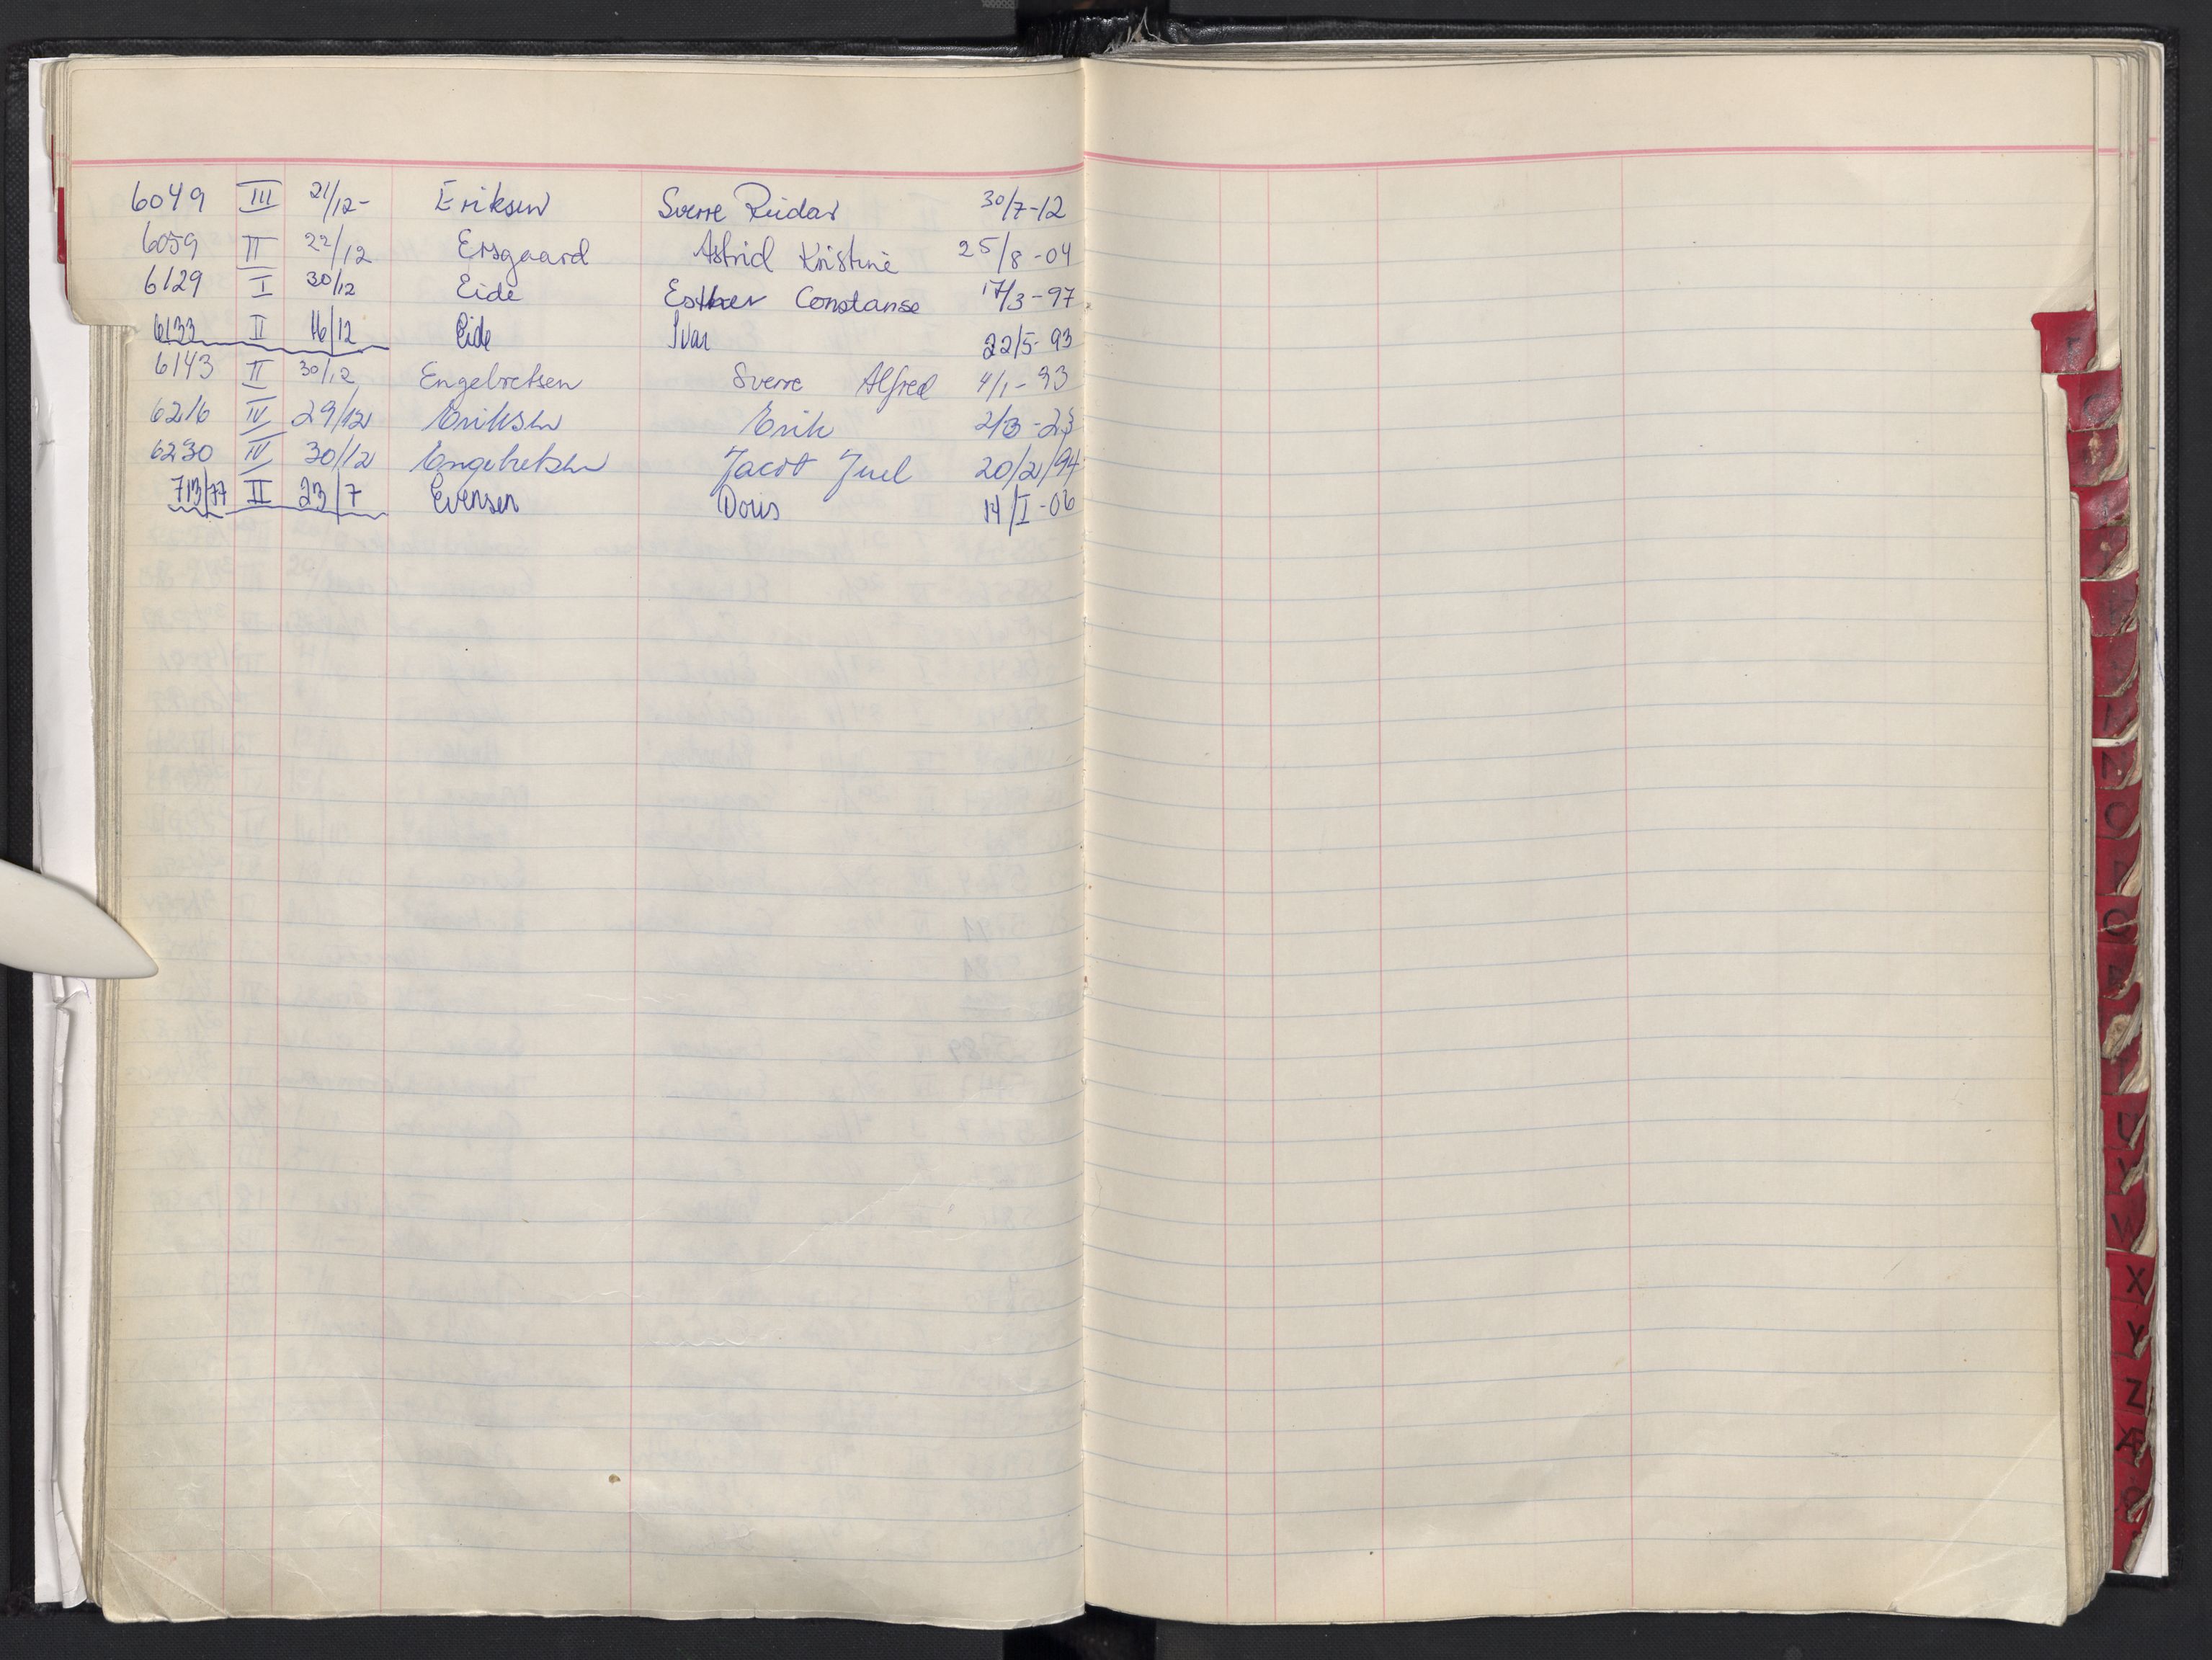 6049 III 21/12- Eriksen Sverre Reidar 30/7-12
6059 II 22/12 Ersgaard Astrid Kristine 25/8-04
6129 I 30/12 Eide Esther Constanse 17/3-97
6133 II 16/12 Eide Ivar 22/5-93
6143 II 30/12 Engebretsen Sverre Alfred 4/1-93
6216 IV 29/12 Eriksen Erik 2/3-23
6230 IV 30/12 Engebretsen Jacob Juel 20/2/94
713/77 II 23/7 Evensen Doris 14/I-06
O
P
Q
R
U
V
W
X
Y
Z
Æ
Ø